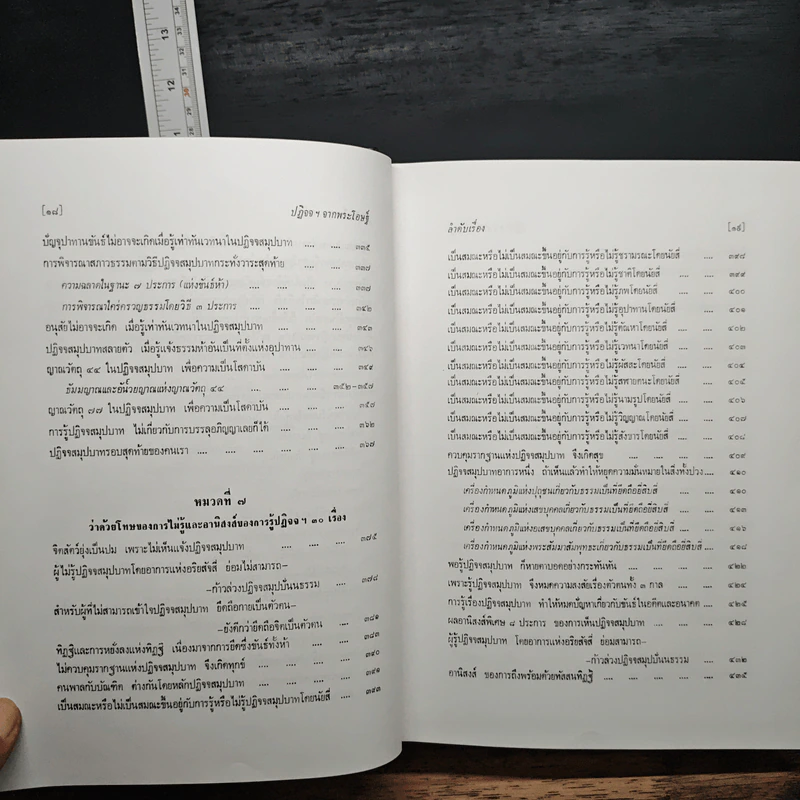 13
12
30
[๑๘] ปฏิจจ ฯ จากพระโอษฐ์
ปัญจุปาทานขันธ์ไม่อาจจะเกิดเมื่อรู้เท่าทันเวทนาในปฏิจจสมุปบาท .... .... ๓๓๕
การพิจารณาสภาวธรรมตามวิธีปฏิจจสมุปบาทกระทั่งวาระสุดท้าย .... .... ๓๓๗
ความฉลาดในฐานะ ๗ ประการ (แห่งขันธ์ห้า) .... .... .... ๓๓๗
การพิจารณาใคร่ครวญธรรมโดยวิธี ๓ ประการ .... .... .... ๓๔๒
อนุสัยไม่อาจจะเกิด เมื่อรู้เท่าทันเวทนาในปฏิจจสมุปบาท .... .... .... ๓๔๓
ปฏิจจสมุปบาทสลายตัว เมื่อรู้แจ้งธรรมห้าอันเป็นที่ตั้งแห่งอุปาทาน .... .... ๓๔๖
ญาณวัตถุ ๔๔ ในปฏิจจสมุปบาท เพื่อความเป็นโสดาบัน .... .... .... ๓๔๙
ธัมมญาณและอันวยญาณแห่งญาณวัตถุ ๔๔ .... .... .... ๓๕๒-๓๕๗
ญาณวัตถุ ๗๗ ในปฏิจจสมุปบาท เพื่อความเป็นโสดาบัน .... .... .... ๓๕๗
การรู้ปฏิจจสมุปบาท ไม่เกี่ยวกับการบรรลุอภิญญาเลยก็ได้ .... .... .... ๓๖๒
ปฏิจจสมุปบาทรอบสุดท้ายของคนเรา .... .... .... .... .... ๓๖๗
หมวดที่ ๗
ว่าด้วยโทษของการไม่รู้และอานิสงส์ของการรู้ปฏิจจ ฯ ๓๐ เรื่อง
จิตสัตว์ยุ่งเป็นปม เพราะไม่เห็นแจ้งปฏิจจสมุปบาท .... .... .... ๓๗๕
ผู้ไม่รู้ปฏิจจสมุปบาทโดยอาการแห่งอริยสัจสี่ ย่อมไม่สามารถ-
-ก้าวล่วงปฏิจจสมุปปันนธรรม .... .... ๓๗๘
สำหรับผู้ที่ไม่สามารถเข้าใจปฏิจจสมุปบาท ยึดถือกายเป็นตัวตน-
-ยังดีกว่ายึดถือจิตเป็นตัวตน .... .... ๓๘๑
ทิฏฐิและการหยั่งลงแห่งทิฏฐิ เนื่องมาจากการยึดซึ่งขันธ์ทั้งห้า .... .... ๓๘๓
ไม่ควบคุมรากฐานแห่งปฏิจจสมุปบาท จึงเกิดทุกข์ .... .... .... ๓๙๐
คนพาลกับบัณฑิต ต่างกันโดยหลักปฏิจจสมุปบาท .... .... .... ๓๙๑
เป็นสมณะหรือไม่เป็นสมณะขึ้นอยู่กับการรู้หรือไม่รู้ปฏิจจสมุปบาทโดยนัยสี่ .... .... ๓๙๓
ลำดับเรื่อง [๑๙]
เป็นสมณะหรือไม่เป็นสมณะขึ้นอยู่กับการรู้หรือไม่รู้ชรามรณะโดยนัยสี่ .... ๓๙๘
เป็นสมณะหรือไม่เป็นสมณะขึ้นอยู่กับการรู้หรือไม่รู้ชาติโดยนัยสี่ .... .... ๓๙๙
เป็นสมณะหรือไม่เป็นสมณะขึ้นอยู่กับการรู้หรือไม่รู้ภพโดยนัยสี่ .... .... ๔๐๐
เป็นสมณะหรือไม่เป็นสมณะขึ้นอยู่กับการรู้หรือไม่รู้อุปาทานโดยนัยสี่ .... ๔๐๑
เป็นสมณะหรือไม่เป็นสมณะขึ้นอยู่กับการรู้หรือไม่รู้ตัณหาโดยนัยสี่ .... .... ๔๐๒
เป็นสมณะหรือไม่เป็นสมณะขึ้นอยู่กับการรู้หรือไม่รู้เวทนาโดยนัยสี่ .... .... ๔๐๓
เป็นสมณะหรือไม่เป็นสมณะขึ้นอยู่กับการรู้หรือไม่รู้ผัสสะโดยนัยสี่ .... .... ๔๐๔
เป็นสมณะหรือไม่เป็นสมณะขึ้นอยู่กับการรู้หรือไม่รู้สฬายตนะโดยนัยสี่ .... .... ๔๐๕
เป็นสมณะหรือไม่เป็นสมณะขึ้นอยู่กับการรู้หรือไม่รู้นามรูปโดยนัยสี่ .... .... ๔๐๖
เป็นสมณะหรือไม่เป็นสมณะขึ้นอยู่กับการรู้หรือไม่รู้วิญญาณโดยนัยสี่ .... .... ๔๐๗
เป็นสมณะหรือไม่เป็นสมณะขึ้นอยู่กับการรู้หรือไม่รู้สังขารโดยนัยสี่ .... .... ๔๐๘
ควบคุมรากฐานแห่งปฏิจจสมุปบาท จึงเกิดสุข .... .... .... ๔๐๙
ปฏิจจสมุปบาทอาการหนึ่ง ถ้าเห็นแล้วทำให้หยุดความมั่นหมายในสิ่งทั้งปวง .... ๔๑๐
เครื่องกำหนดภูมิแห่งปุถุชนเกี่ยวกับธรรมเป็นที่ยึดถือยี่สิบสี่ .... .... ๔๑๐
เครื่องกำหนดภูมิแห่งเสขบุคคลเกี่ยวกับธรรมเป็นที่ยึดถือยี่สิบสี่ .... .... ๔๑๓
เครื่องกำหนดภูมิแห่งอเสขบุคคลเกี่ยวกับธรรมเป็นที่ยึดถือยี่สิบสี่ .... .... ๔๑๖
เครื่องกำหนดภูมิแห่งพระสัมมาสัมพุทธะเกี่ยวกับธรรมเป็นที่ยึดถือยี่สิบสี่ .... ๔๑๘
พอรู้ปฏิจจสมุปบาท ก็หายตาบอดอย่างกระทันหัน .... .... .... ๔๒๐
เพราะรู้ปฏิจจสมุปบาท จึงหมดความสงสัยเรื่องตัวตนทั้ง ๓ กาล .... .... ๔๒๔
การรู้เรื่องปฏิจจสมุปบาท ทำให้หมดปัญหาเกี่ยวกับขันธ์ในอดีตและอนาคต .... ๔๒๕
ผลอานิสงส์พิเศษ ๘ ประการ ของการเห็นปฏิจจสมุปบาท .... .... ๔๒๘
ผู้รู้ปฏิจจสมุปบาท โดยอาการแห่งอริยสัจสี่ ย่อมสามารถ-
-ก้าวล่วงปฏิจจสมุปปันนธรรม .... .... ๔๓๒
อานิสงส์ ของการถึงพร้อมด้วยทัสสนทิฏฐิ .... .... .... .... ๔๓๕